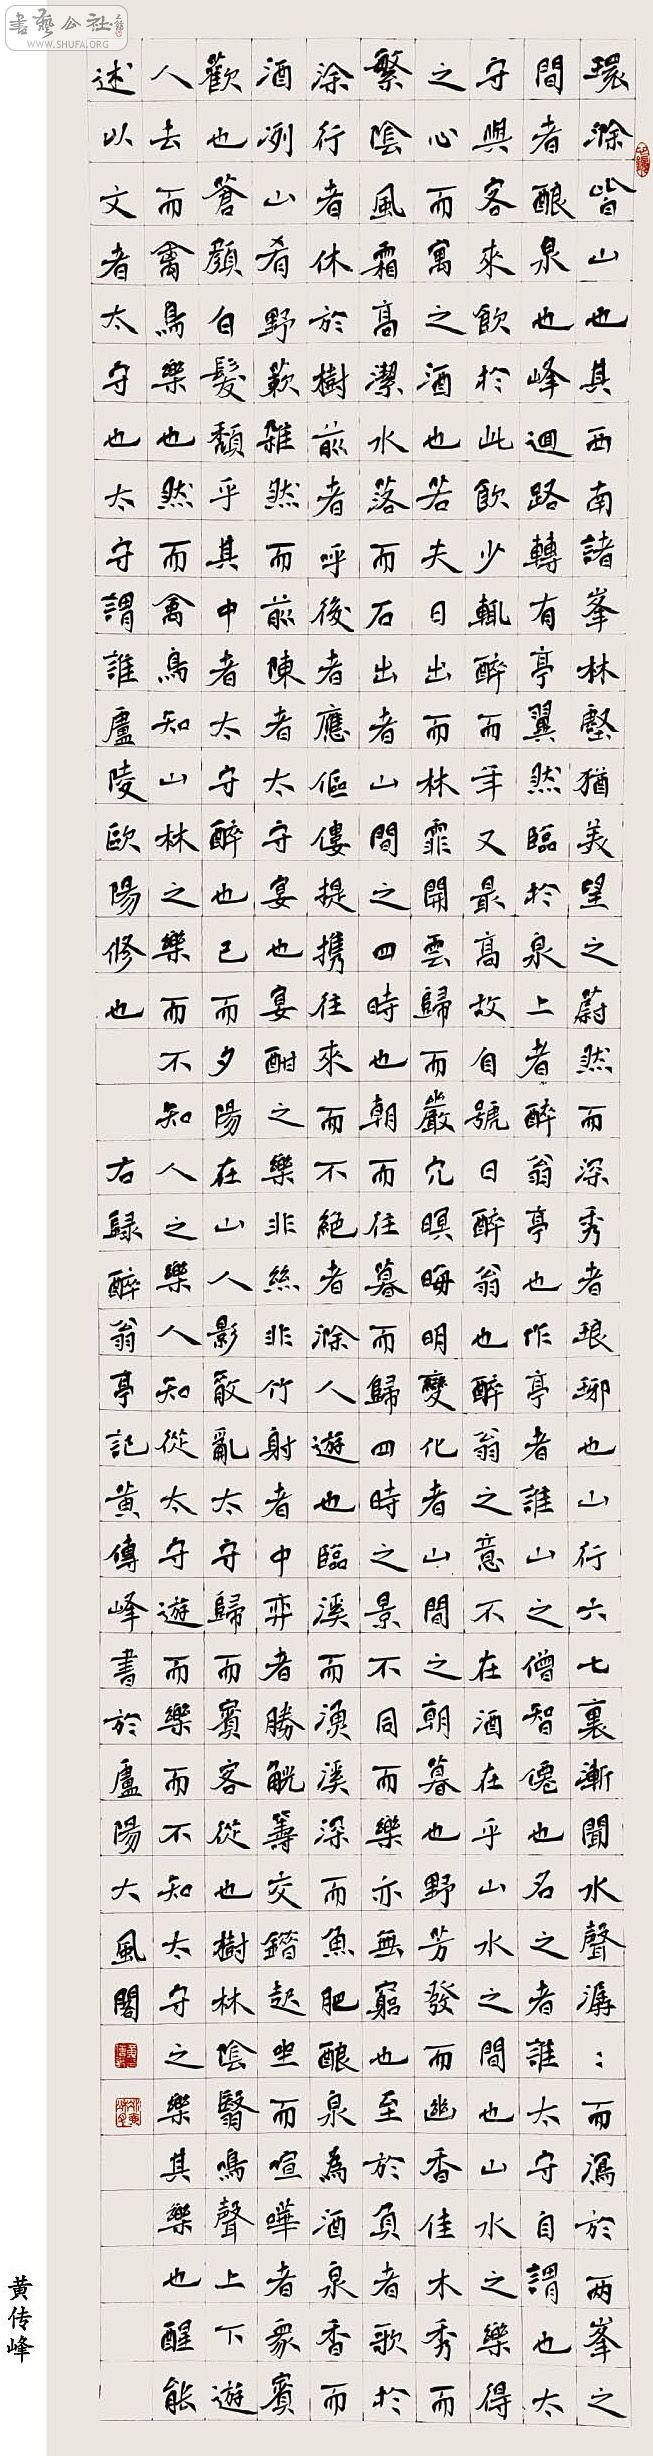 書藝公社
WWW.SHUFA.ORG
環滁皆山也其西南諸峯林壑猶美望之蔚然而深秀者琅琊也山行六七裏漸聞水聲潺〻而瀉於两峯之
間者酿泉也峰迴路轉有亭翼然臨於泉上者醉翁亭也作亭者誰山之僧智僊也名之者誰太守自謂也太
守與客來飲於此飲少輒醉而年又最高故自號曰醉翁也醉翁之意不在酒在乎山水之間也山水之樂得
之心而寓之酒也若夫日出而林霏開雲歸而巖穴暝晦明變化者山間之朝暮也野芳發而幽香佳木秀而
繁陰風霜高潔水落而石出者山間之四時也朝而往暮而歸四時之景不同而樂亦無窮也至於負者歌於
涂行者休於樹前者呼後者應傴僂提携往來而不絶者滁人遊也臨溪而漁溪深而魚肥酿泉為酒泉香而
酒冽山肴野蔌雜然而前陳者太守宴也宴酣之樂非絲非竹射者中弈者勝觥籌交錯起坐而喧嘩者衆賓
歡也蒼顔白髮頽乎其中者太守醉也已而夕陽在山人影散亂太守歸而賓客從也樹林陰翳鳴聲上下遊
人去而禽鳥樂也然而禽鳥知山林之樂而不知人之樂人知從太守遊而樂而不知太守之樂其樂也醒能
述以文者太守也太守謂誰盧陵歐陽修也 右録醉翁亭記黃傳峰書於盧陽大風閣
黄传峰